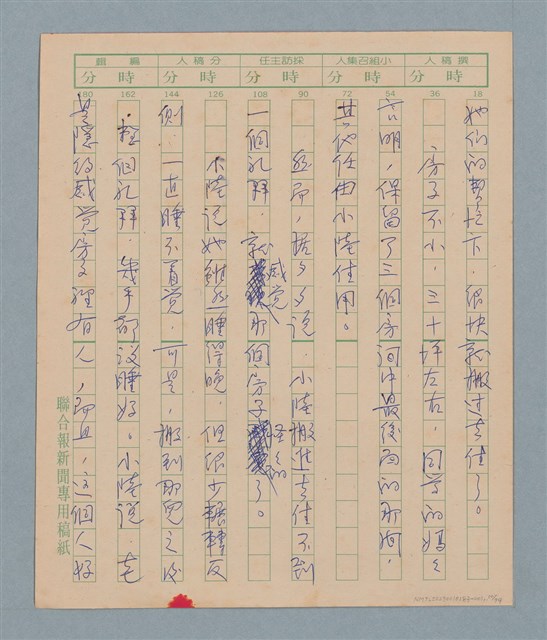 撰稿人 小組召集人 採訪主任 分稿人 編輯
時 分 時 分 時 分 時 分 時 分
18 36 54 72 90 108 126 144 162 180
她們的費忙下，很快就搬过去住了。
房子不小，三十坪左右，同学的媽媽
言明，保留了三個房间中最後面的那间，
其他任由小陸使用。
然而，据夕夕说，小陸搬進去住不到
一個礼拜，就感觉那個房子怪怪的了。
小陸说她雖然睡得晚，但很少輾轉反
側，一直睡不着觉，可是，搬到那兒之後
，整個礼拜，幾乎都没睡好。小陸说，老
是隱约感觉房子裡有人，而且，这個人好
聯合報新聞專用稿紙